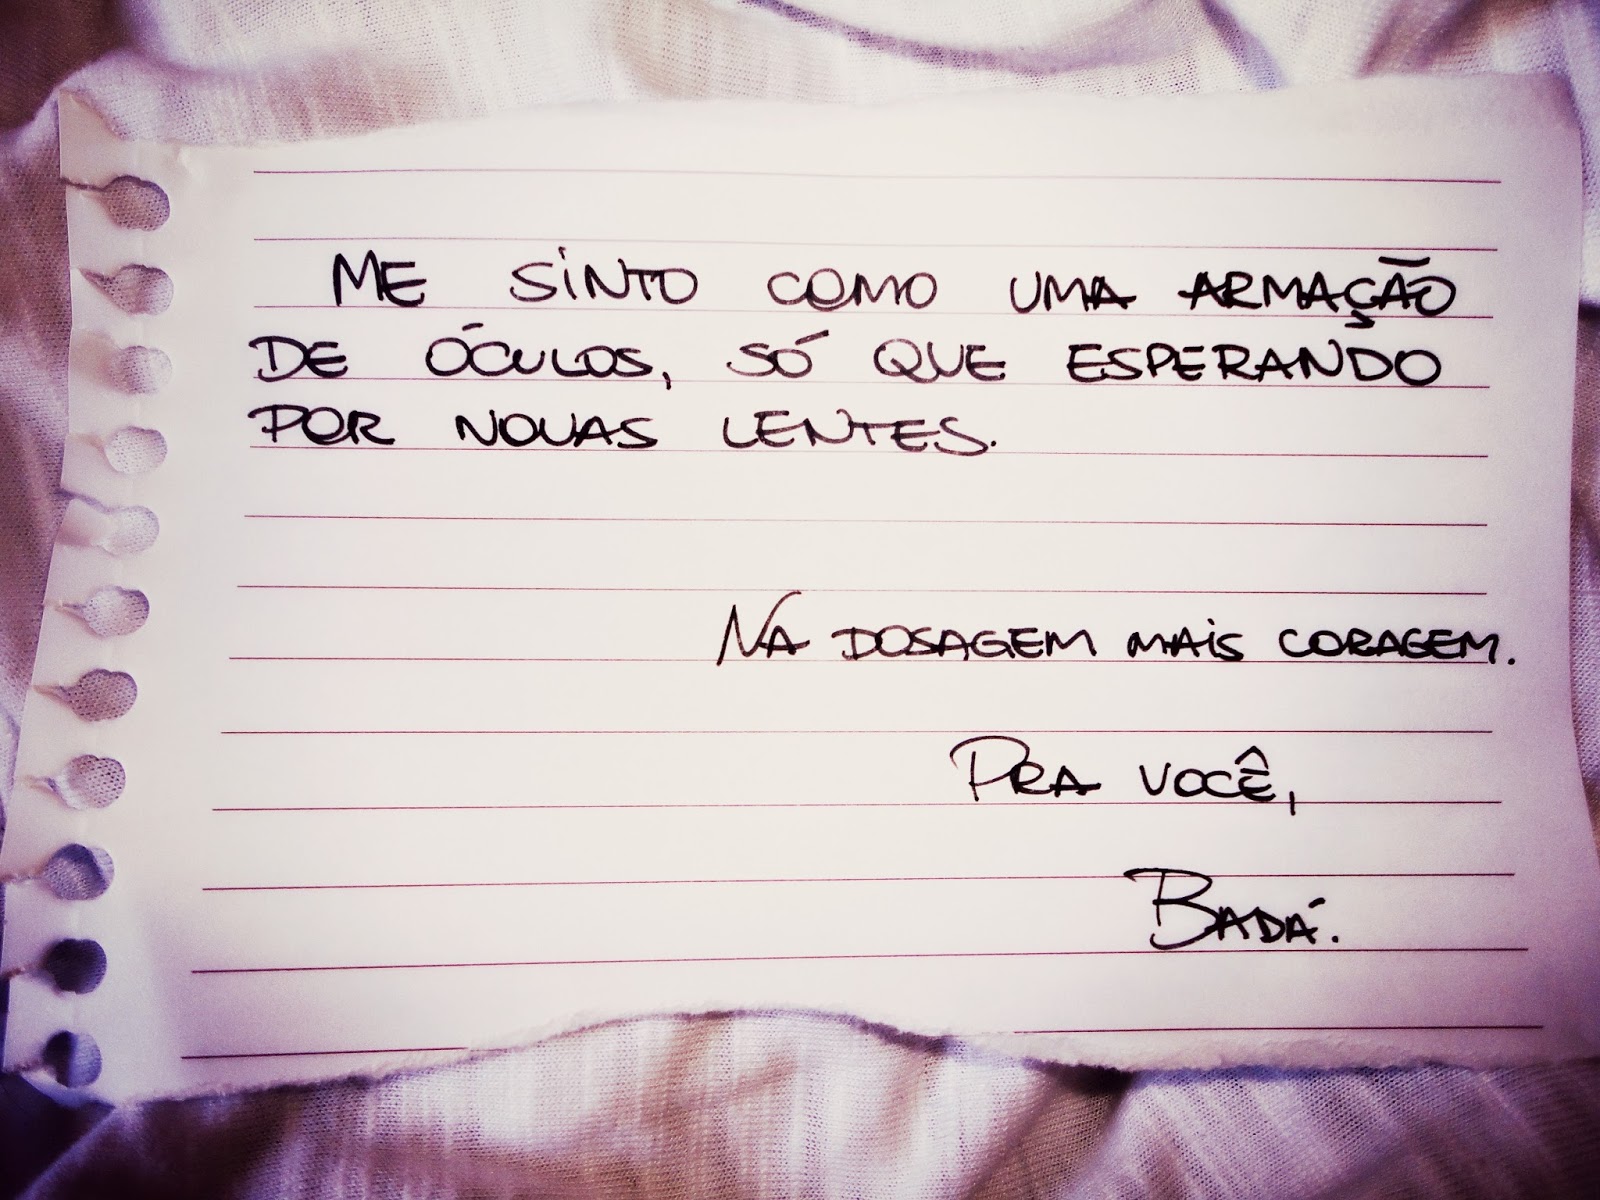 ME SiNTO COMO UMA ARMAÇÃO
DE ÓCULOS, SÓ QUE ESPERANDO
POR NOVAS LENTES.
NA DOSAGEM MAiS CORAGEM.
PRA VOCÊ,
BADÁ.